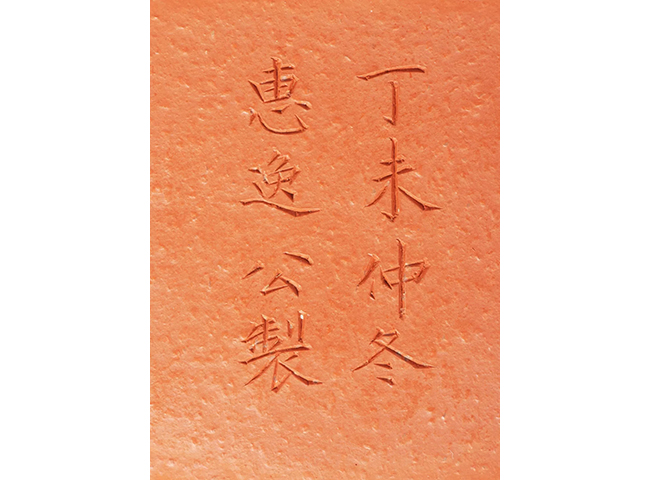 丁未仲冬
惠逸公製